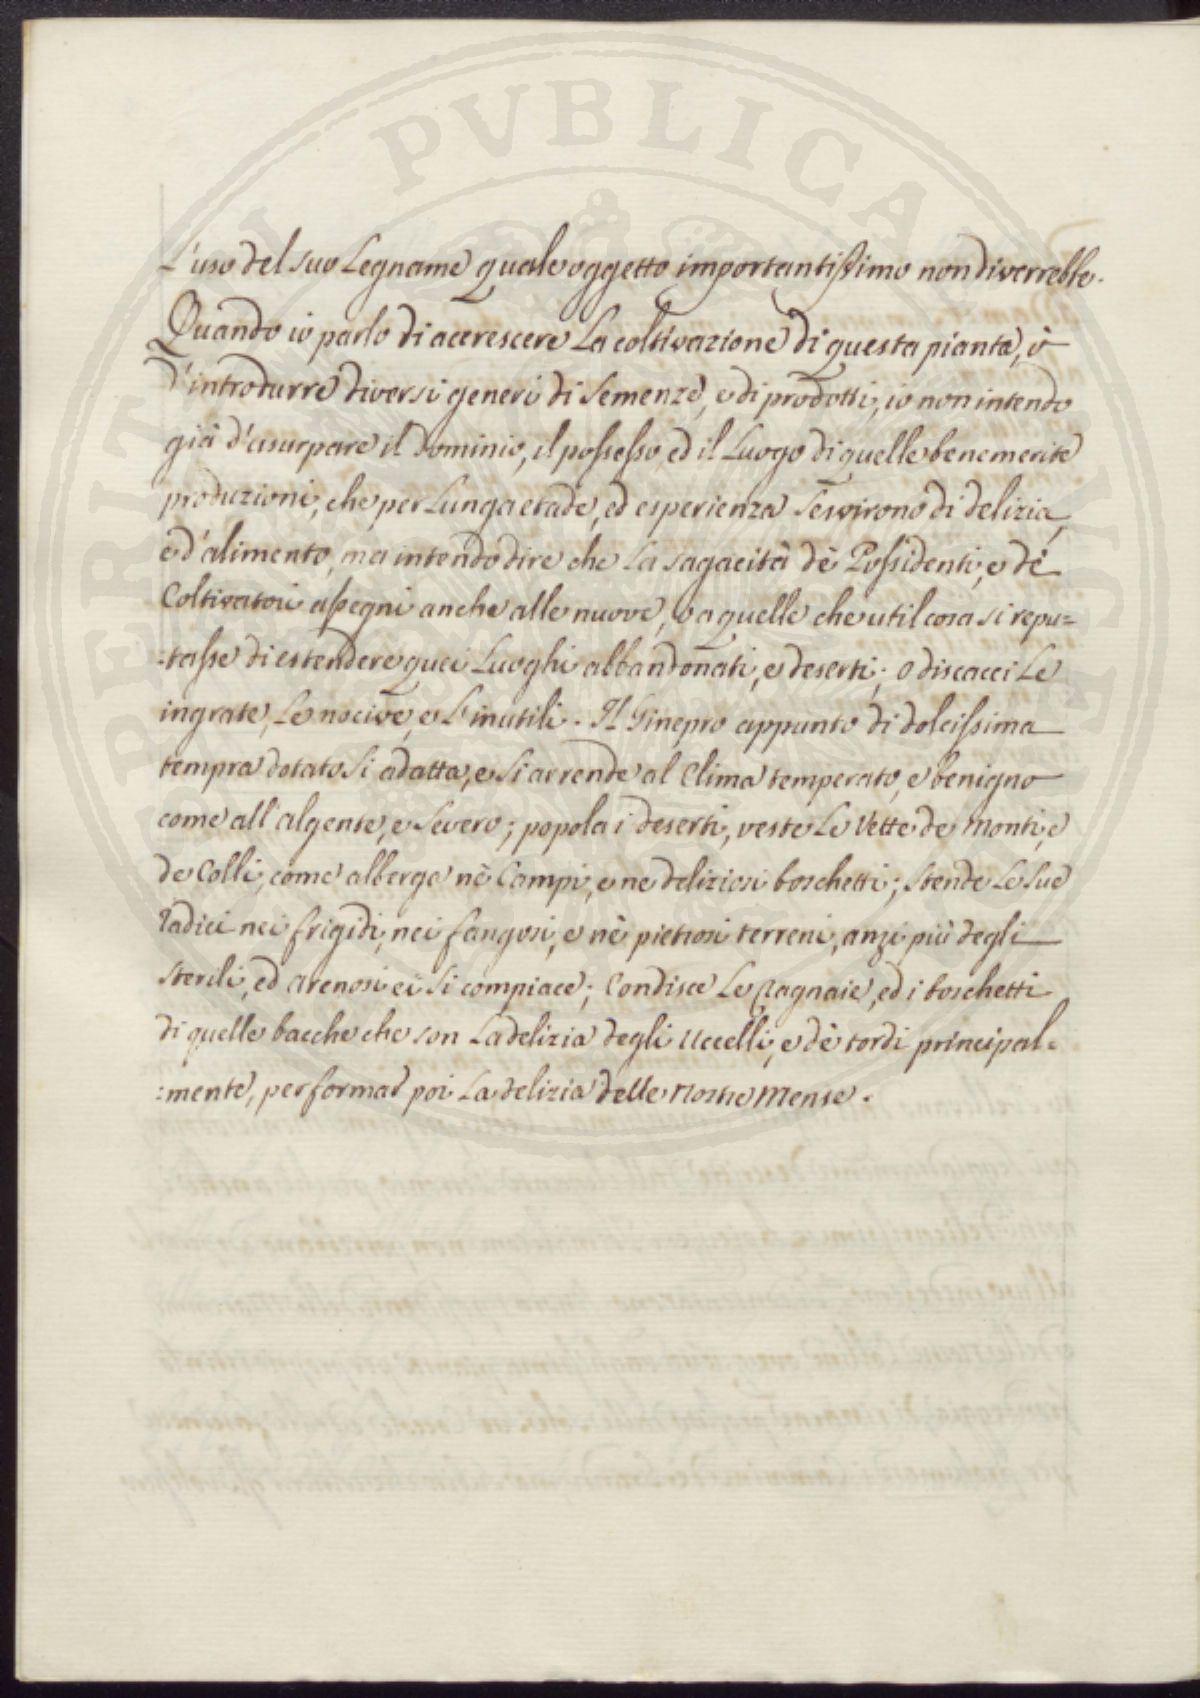 PERITIÆ PVBLICAE VINCEN
L'uso del suo Legname quale oggetto importantissimo non diverrebbe.
Quando io parlo di acerescere La coltivazione di questa pianta, ò
d'introdurre diversi generi di Semenze, e di prodotti, io non intendo
già d'usurpare il dominio, il possesso, ed il Luogo di quelle benemerite
produzioni, che per Lunga etade, ed esperienza Servirono di delizia,
e d'alimento, ma intendo dire che La sagacità dè Possidenti, e dè
Coltivatori assegni anche alle nuove, o a quelle che util cosa si repu=
=tasse di estendere quei Luoghi abbandonati, e deserti; o discacci Le
ingrate, Le nocive, e L'inutili. Il Ginepro appunto di dolcissima
tempra dotato Si adatta, e Si arrende al Clima temperato, e benigno
come all'algente, e Severo; popola i deserti, veste Le Vette de Monti, e
de Colli, come alberga nè Campi, e ne deliziosi boschetti; Stende Le Sue
radici nei frigidi, nei fangosi, e nè pietrosi terreni, anzi più degli
Sterili, ed arenosi ei Si compiace; Condisce Le Ragnaie, ed i boschetti
di quelle bacche che son La delizia degli Uccelli, e dè tordi principal=
=mente, per formar poi La delizia delle Nostre Mense.